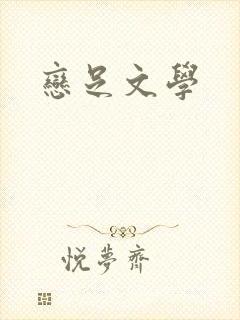 戀足文學
悅夢齋